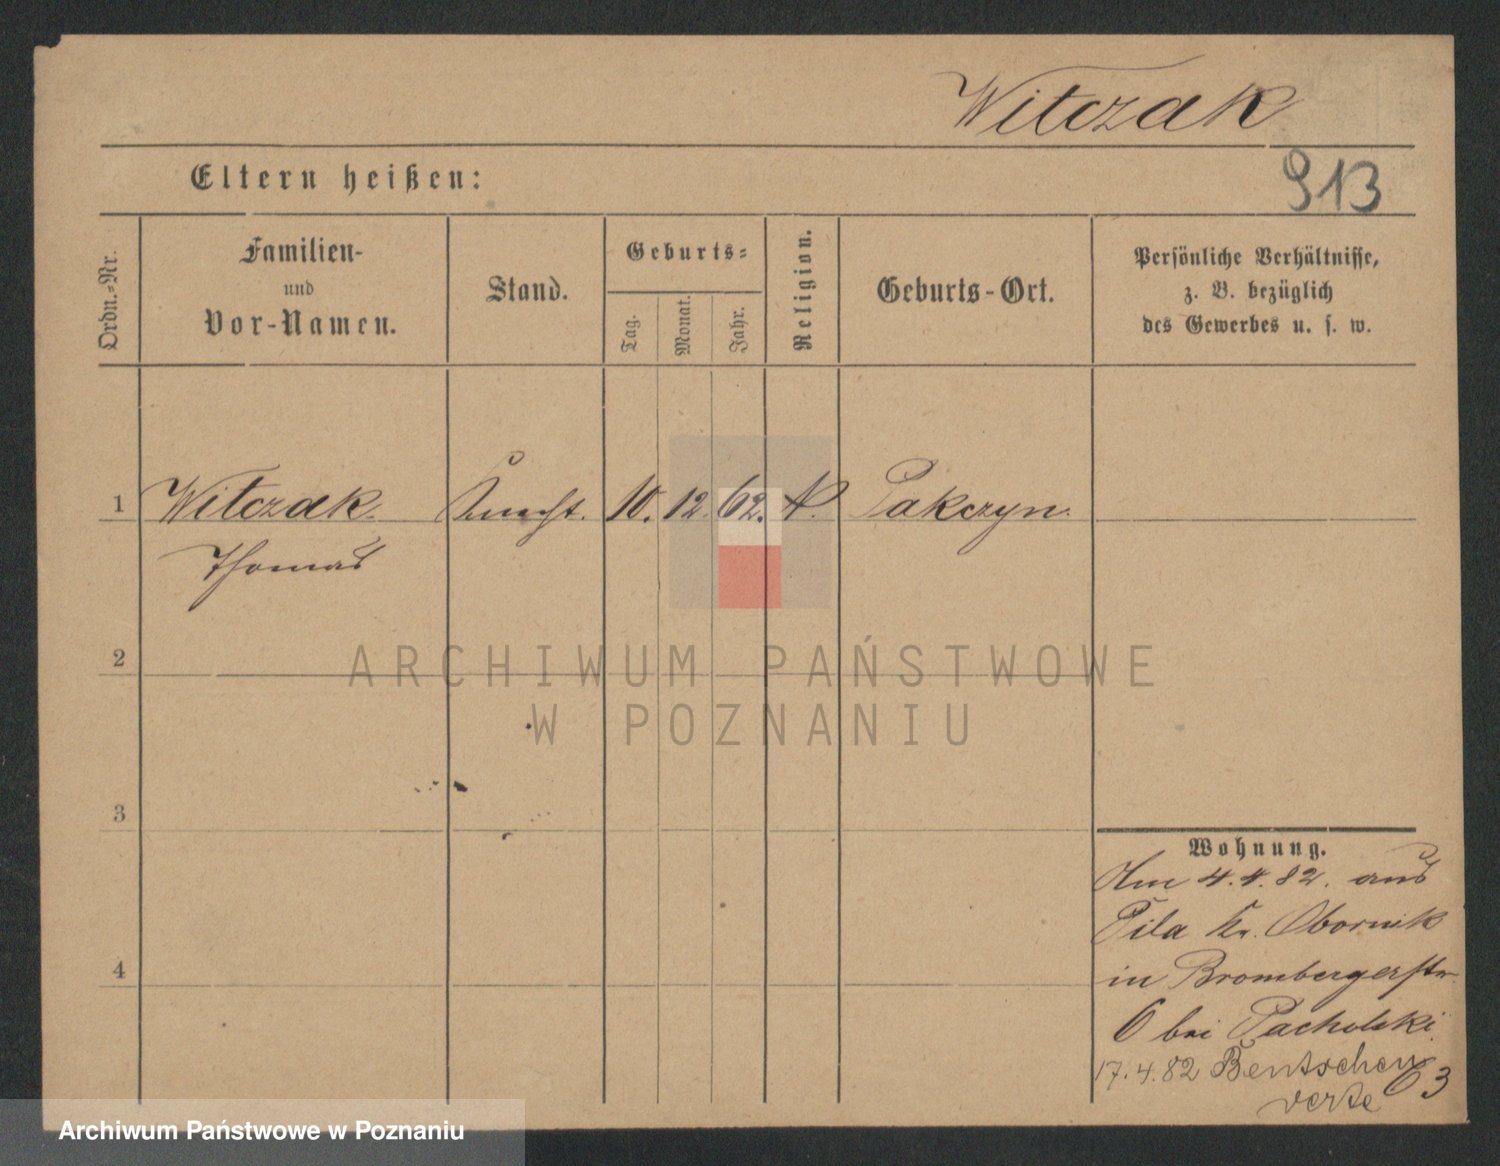 Witczak
913
Eltern heißen:
Ordn.-Nr.
Familien-
und
Vor-Namen.
Stand.
Geburts-
Tag.
Monat.
Jahr.
Religion.
Geburts-Ort.
Persönliche Verhältnisse,
z. B. bezüglich
des Gewerbes u. s. w.
1 Witczak Knecht. 10. 12. 62. Pakczyn.
Thomas
2
ARCHIWUM PAŃSTWOWE
W POZNANIU
3
Wohnung.
Am 4.4.82. aus
Pila Kr. Obornik
in Brombergerstr
6 bei Pacholski
4
17.4.82 Bentschen
63
verte
Archiwum Państwowe w Poznaniu